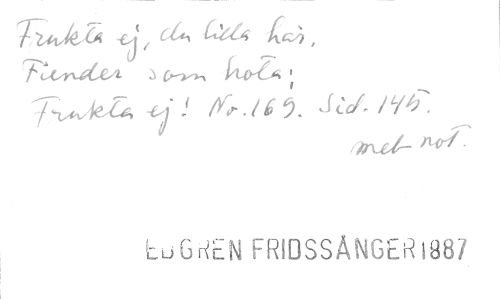 Frukta ej, du lilla här,
Fiender som hota;
Frukta ej! No. 169. Sid. 145.
med not.
EDGREN FRIDSSÅNGER 1887